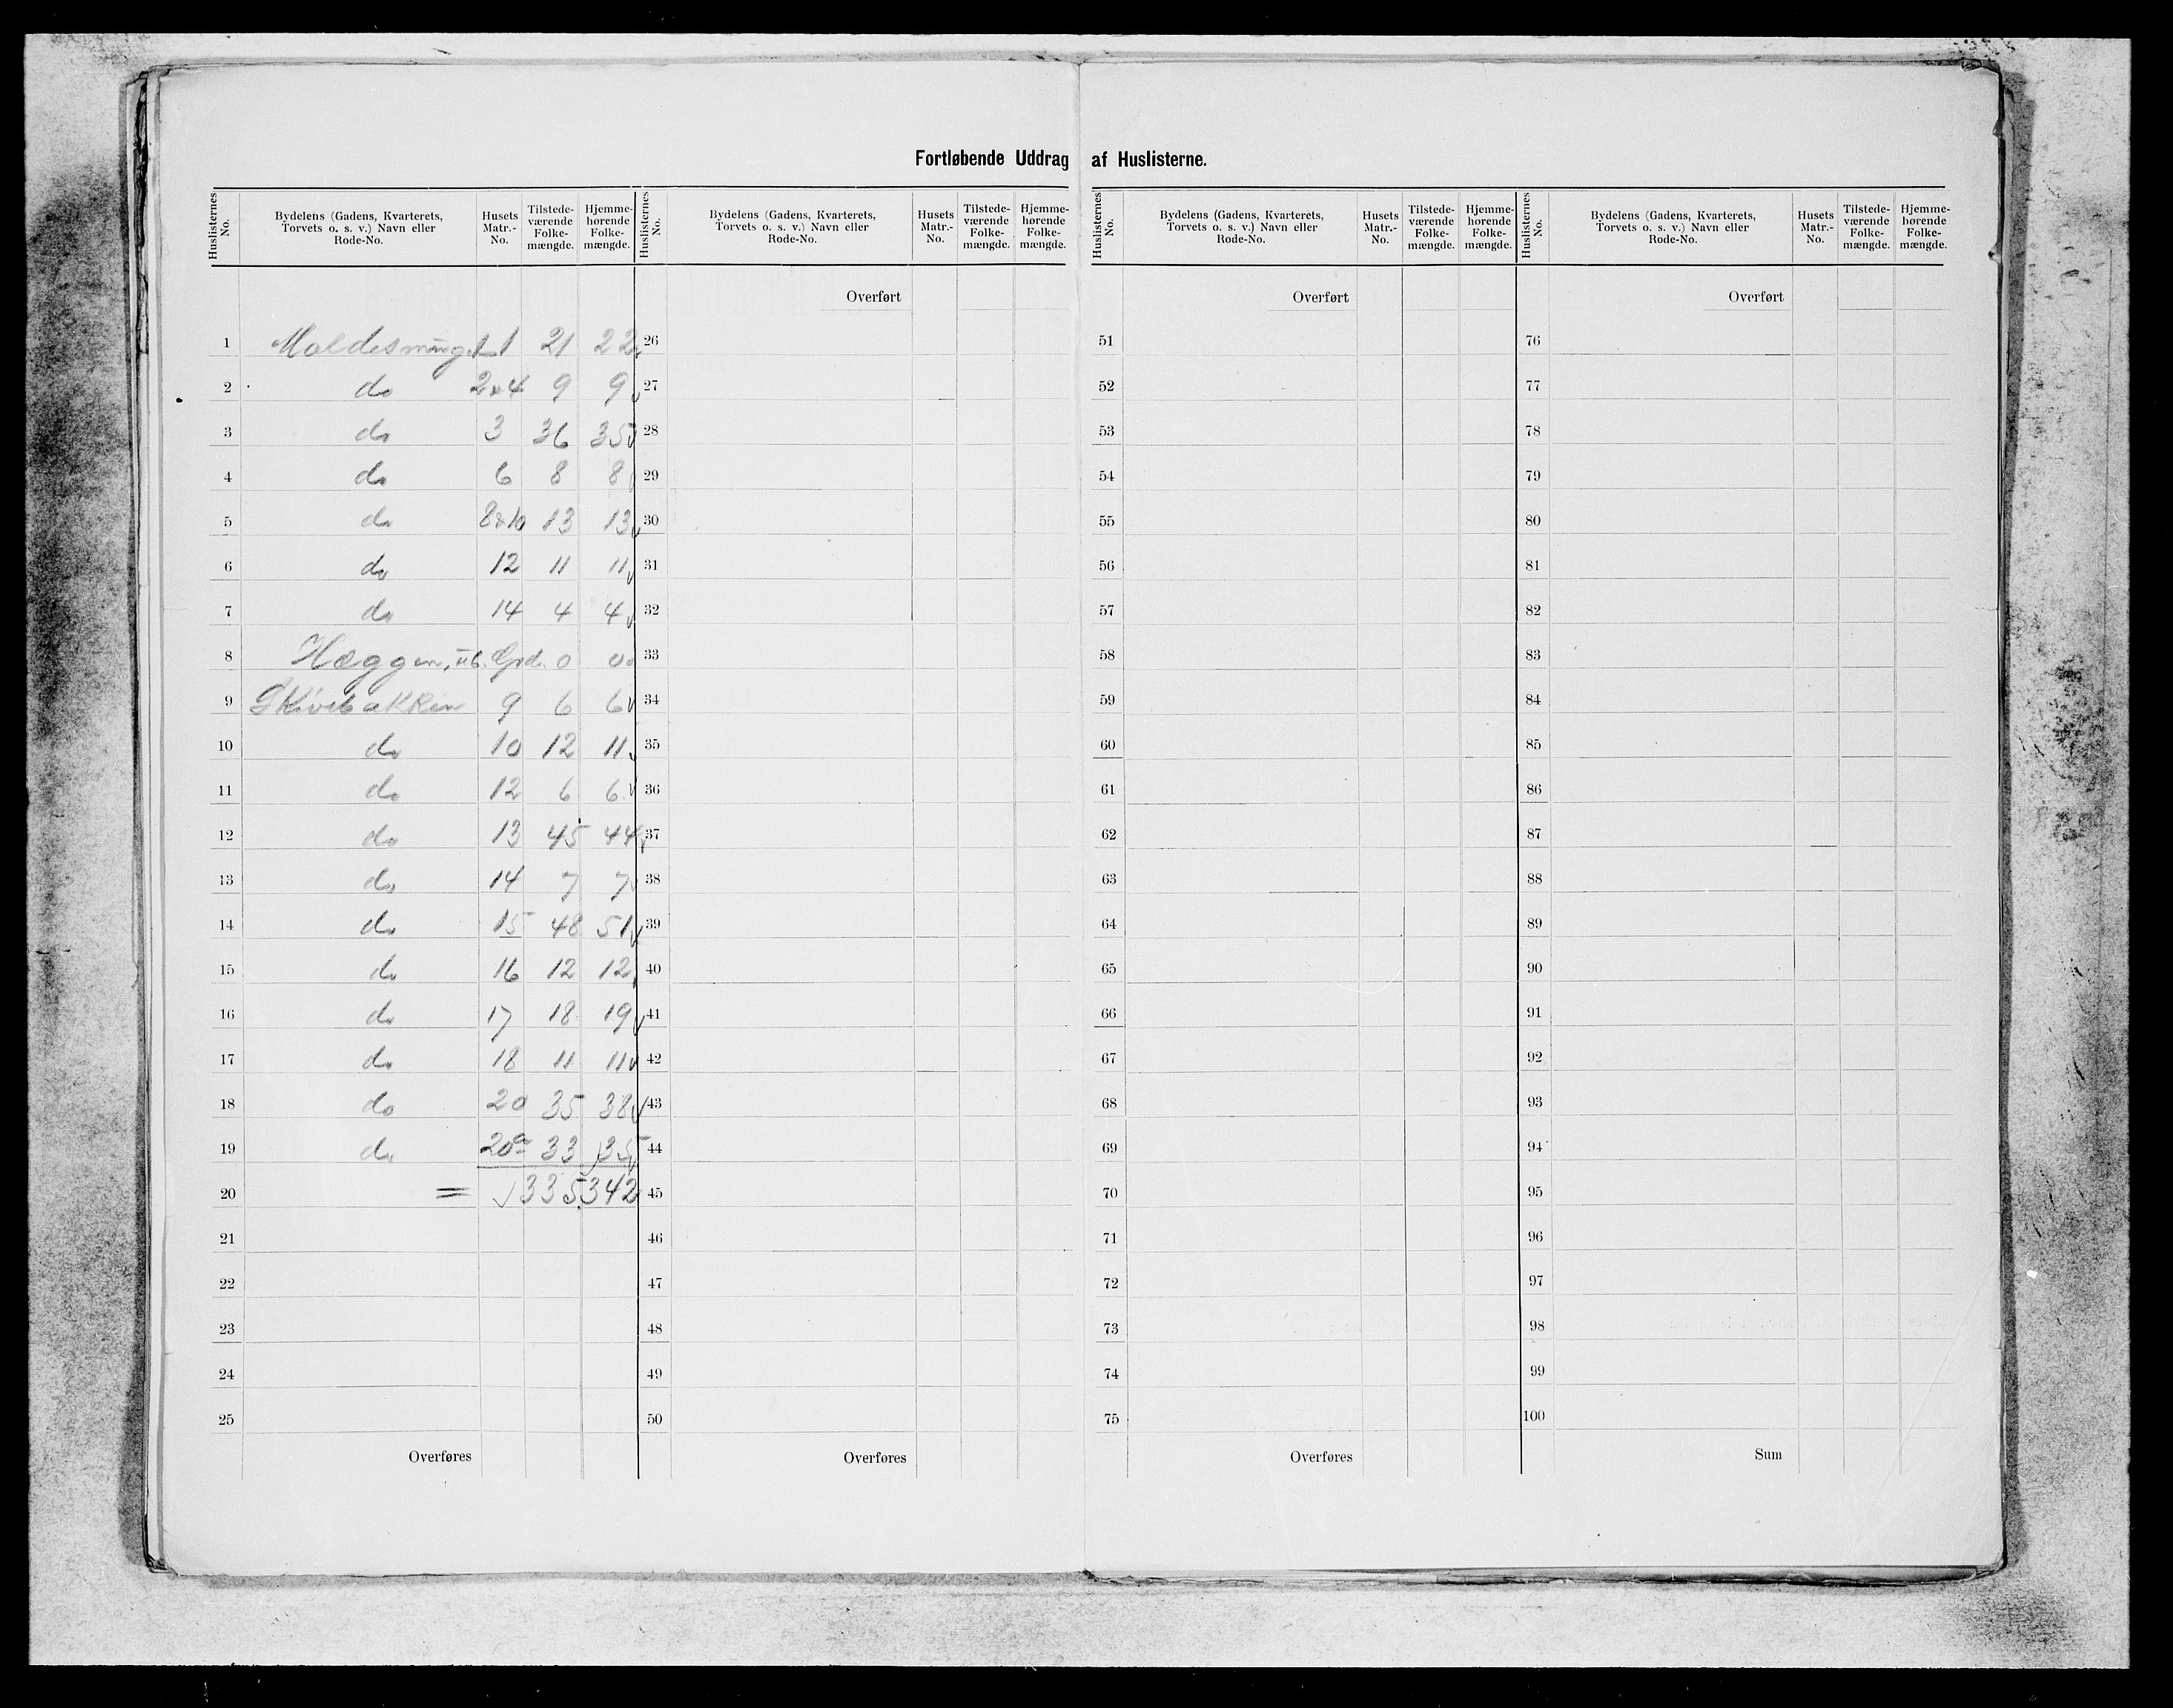 Fortløbende Uddrag af Huslisterne.
Huslisternes No. Bydelens (Gadens, Kvarterets, Torvets o. s. v.) Navn eller Rode-No. Husets Matr.-No. Tilstedeværende Folkemængde. Hjemmehørende Folkemængde.
1 Moldesmuget 1 21 22
2 do 2&4 9 9
3 do 3 36 35
4 do 6 8 8
5 do 8&10 13 13
6 do 12 11 11
7 do 14 4 4
8 Hæggen, ub. Grd. 0 0
9 Skivebakken 9 6 6
10 do 10 12 11
11 do 12 6 6
12 do 13 45 44
13 do 14 7 7
14 do 15 48 51
15 do 16 12 12
16 do 17 18 19
17 do 18 11 11
18 do 20 35 38
19 do 20a 33 35
20 = 335 342
21
22
23
24
25
Overføres
Huslisternes No. Bydelens (Gadens, Kvarterets, Torvets o. s. v.) Navn eller Rode-No. Husets Matr.-No. Tilstedeværende Folkemængde. Hjemmehørende Folkemængde.
Overført
26
27
28
29
30
31
32
33
34
35
36
37
38
39
40
41
42
43
44
45
46
47
48
49
50
Overføres
Huslisternes No. Bydelens (Gadens, Kvarterets, Torvets o. s. v.) Navn eller Rode-No. Husets Matr.-No. Tilstedeværende Folkemængde. Hjemmehørende Folkemængde.
Overført
51
52
53
54
55
56
57
58
59
60
61
62
63
64
65
66
67
68
69
70
71
72
73
74
75
Overføres
Huslisternes No. Bydelens (Gadens, Kvarterets, Torvets o. s. v.) Navn eller Rode-No. Husets Matr.-No. Tilstedeværende Folkemængde. Hjemmehørende Folkemængde.
Overført
76
77
78
79
80
81
82
83
84
85
86
87
88
89
90
91
92
93
94
95
96
97
98
99
100
Sum